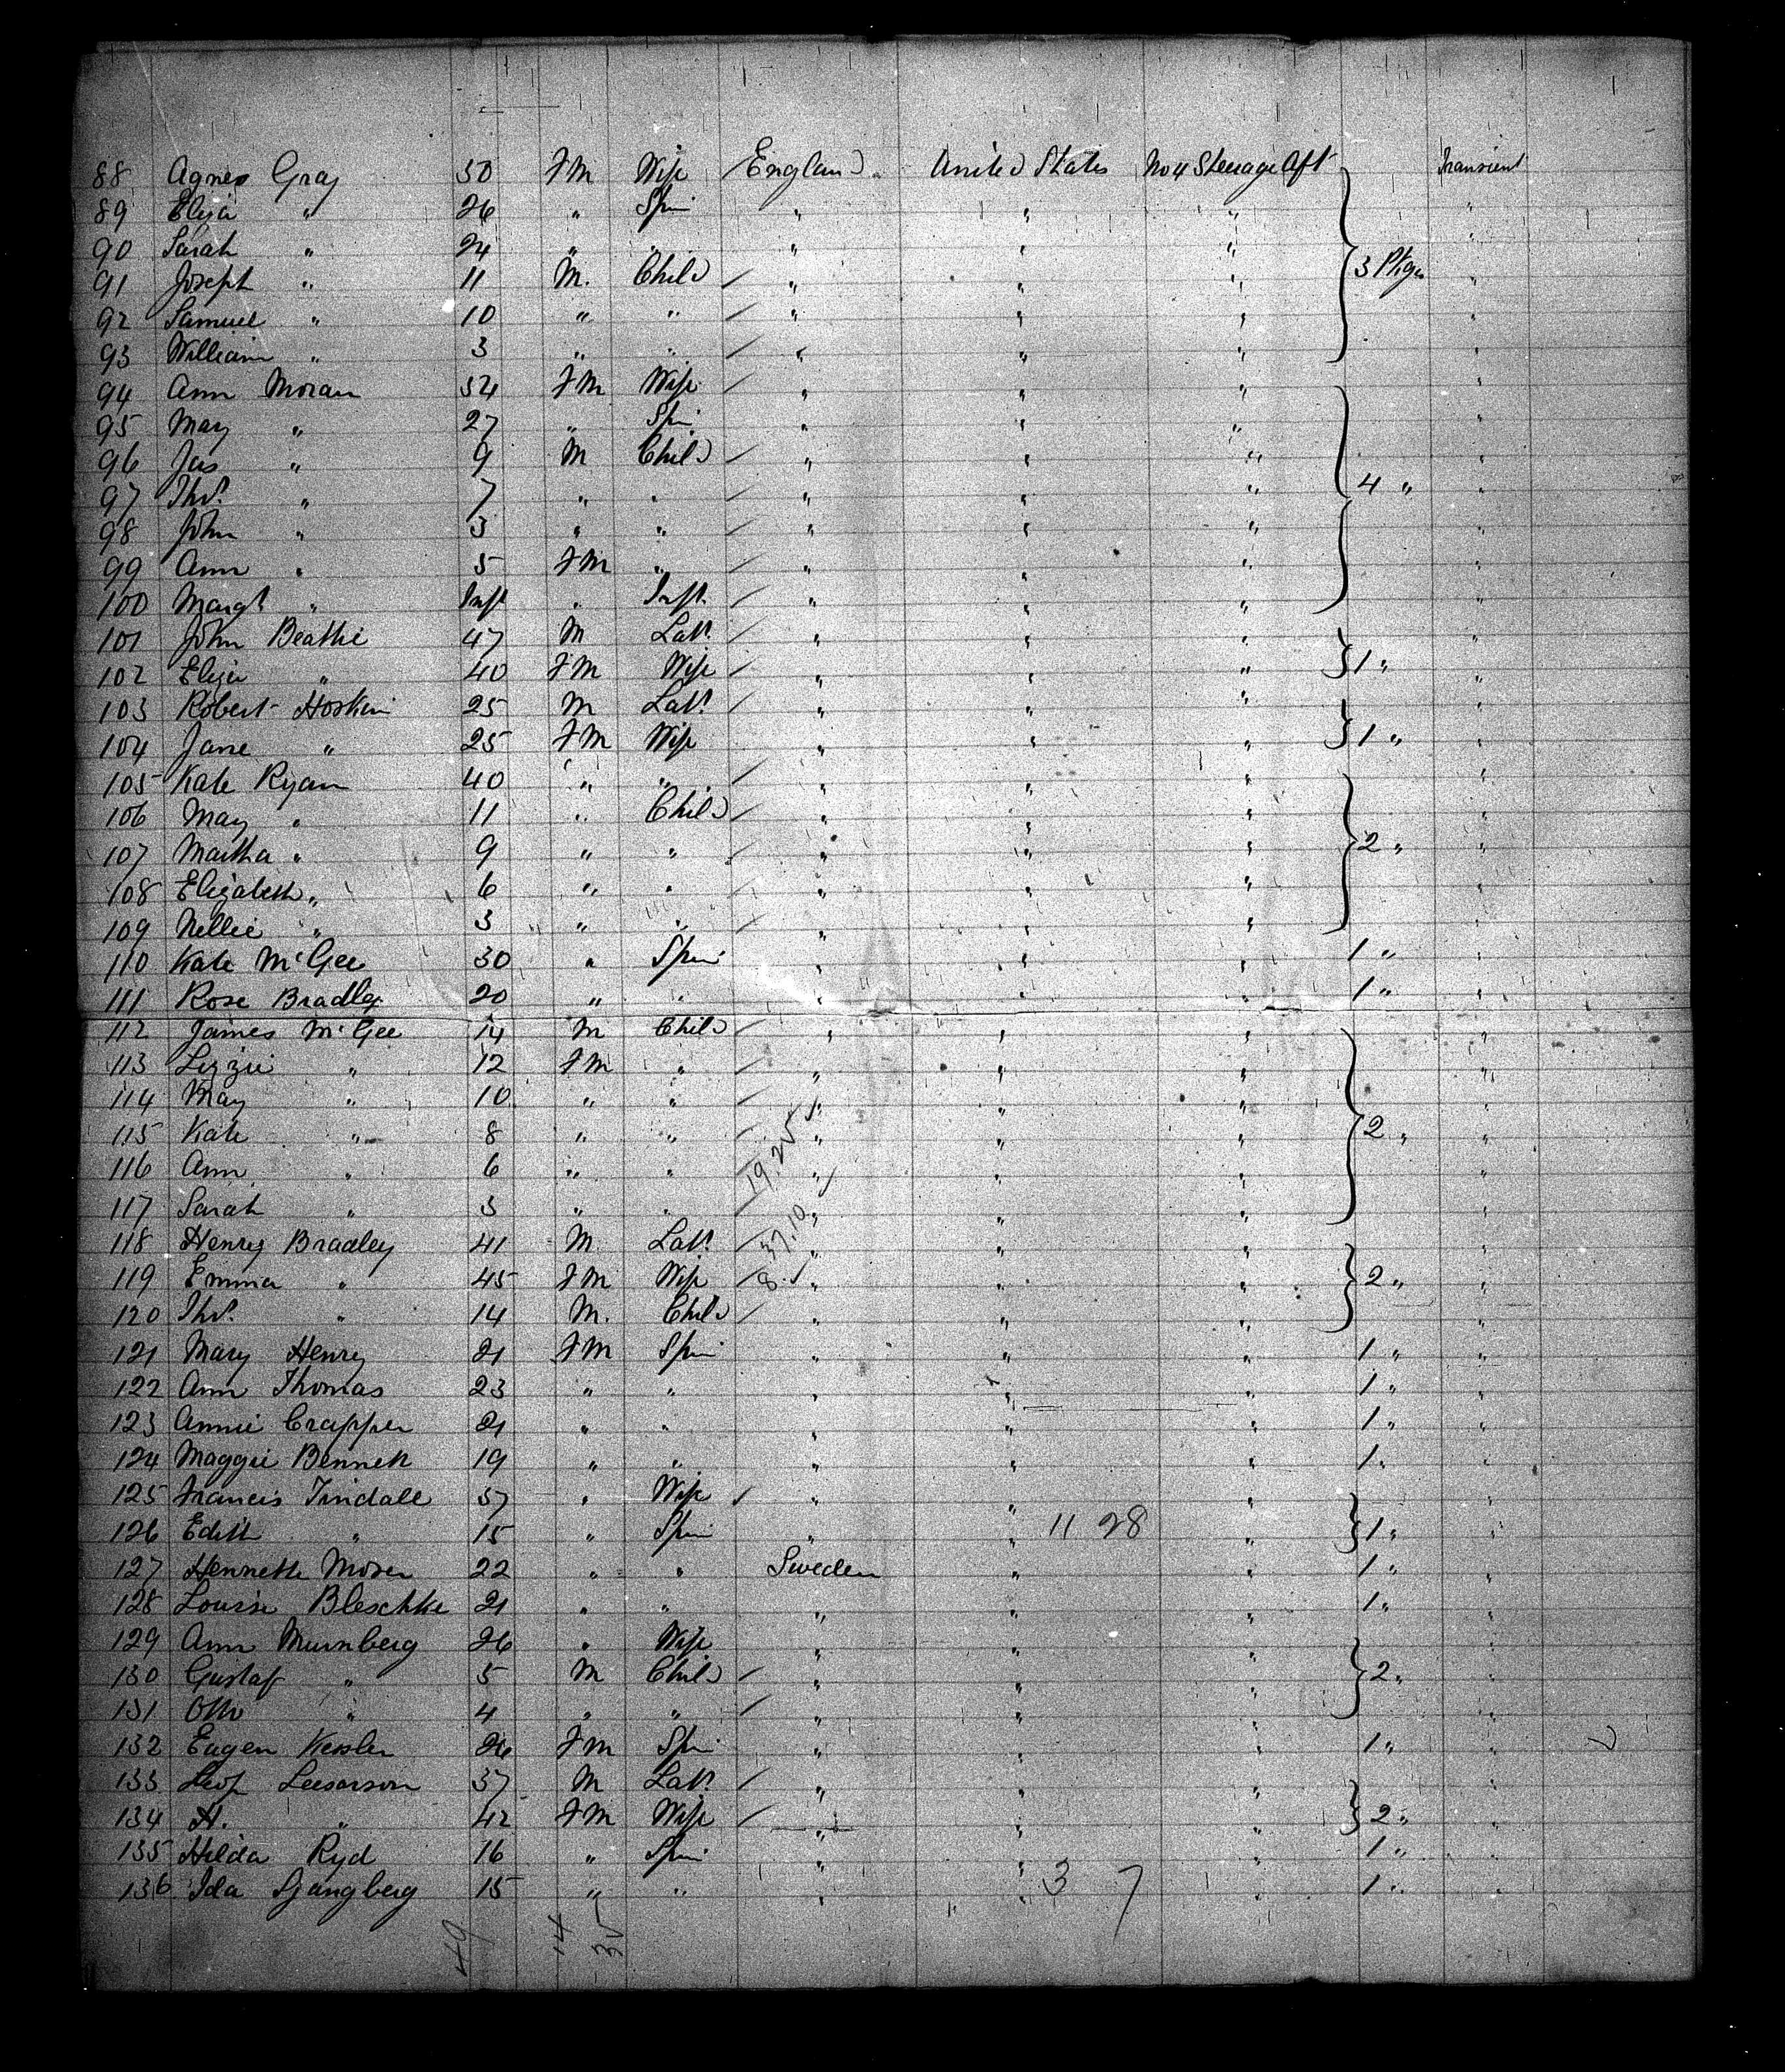 88 Agnes Gray 50 FM Wife England United States No 4 Steerage Aft Transient
89 Eliza " 26 " Spin " " " "
90 Sarah " 24 " " " " " "
91 Joseph " 11 M. Child " " " 3 Pkgs "
92 Samuel " 10 " " " " " "
93 William " 3 " " " " " "
94 Ann Moran 54 FM Wife " " " "
95 Mary " 27 " Spin " " " "
96 Jas " 9 M Child " " " "
97 Thos " 7 " " " " " 4 " "
98 John " 3 " " " " " "
99 Ann " 5 FM " " " " "
100 Margt " Inft " Inft " " " "
101 John Beattie 47 M Labr " " " "
102 Eliza " 40 FM Wife " " " 1 " "
103 Robert Hoskin 25 M Labr " " " "
104 Jane " 25 FM Wife " " " 1 " "
105 Kate Ryan 40 " " " " " "
106 Mary " 11 " Child " " " "
107 Martha " 9 " " " " " 2 " "
108 Elizabeth " 6 " " " " " "
109 Nellie " 3 " " " " " "
110 Kate McGee 30 " Spin " " " 1 " "
111 Rose Bradley 20 " " " " " 1 " "
112 James McGee 14 M Child " " " "
113 Lizzie " 12 FM " " " " "
114 Mary " 10 " " " " " "
115 Kate " 8 " " " " " 2 " "
116 Ann " 6 " " " " " "
117 Sarah " 3 " " " " " "
118 Henry Bradley 41 M Labr " " " "
119 Emma " 45 FM Wife " " " 2 " "
120 Thos " 14 M. Child " " " "
121 Mary Henry 21 FM Spin " " " 1 " "
122 Ann Thomas 23 " " " " " 1 " "
123 Annie Crapper 21 " " " " " 1 " "
124 Maggie Bennett 19 " " " " " 1 " "
125 Francis Tindall 57 " Wife " " " "
126 Edith " 15 " Spin " " 11 28 " 1 " "
127 Hennette Moser 22 " " Sweden " " 1 " "
128 Louise Bleschke 21 " " " " " 1 " "
129 Ann Murnberg 26 " Wife " " " "
130 Gustaf " 5 M Child " " " 2 " "
131 Otto " 4 " " " " " "
132 Eugen Kessler 26 FM Spin " " " 1 " "
133 Leesorson 37 M Labr " " " "
134 H. " 42 FM Wife " " " 2 " "
135 Hilda Ryd 16 " Spin " " " 1 " "
136 Ida Sjangberg 15 " " " " 3 7 " 1 "
49 14 35